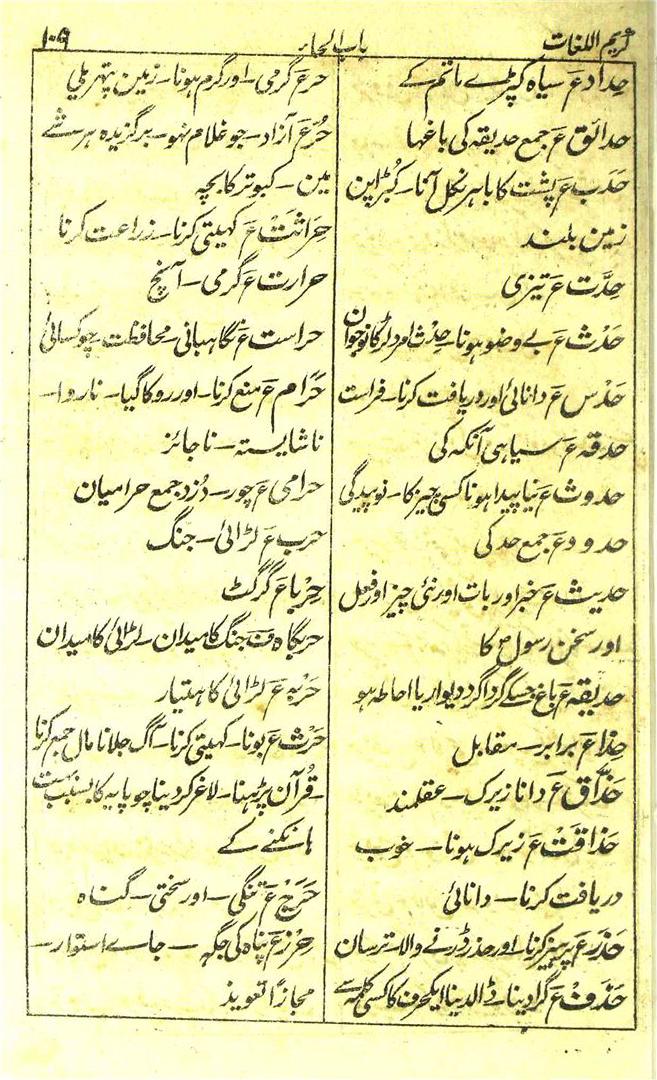 کریم اللغات
باب الحاء
۱۰۹
حِداد ع سیاہ کپڑے ماتم کے
حدائق ع جمع حدیقہ کی باغہا
حَدَب ع پشت کا باہر نکل آنا۔ کُبڑاپن
زمین بلند
حِدّت ع تیزی
حَدَث ع بے وضو ہونا۔ حِدْث امرد لڑکا نوجوان
حَدْس ع دانائی اور دریافت کرنا۔ فراست
حدقہ ع سیاہی آنکہ کی
حدوث ع نیا پیدا ہونا کسی چیز کا۔ نوپیدگی
حدود ع جمع حد کی
حدیث ع خبر اور بات اور نئی چیز اور فعل
اور سخن رسولؐ کا
حدیقہ ع باغ جسکے گرداگرد دیوار یا احاطہ ہو
حِذا ع برابر۔ مقابل
حَذّاق ع دانا زیرک۔ عقلمند
حَذاقَت ع زیرک ہونا۔ خوب
دریافت کرنا۔ دانائی
حَذَر ع پرہیز کرنا۔ اور حذر ڈرنے والا۔ ترسان
حَذف ع گرا دینا۔ ڈالدینا ایکحرف کا کسی کلمہ سے
حر ع گرمی۔ اور گرم ہونا۔ زمین پتہریلی
حُر ع آزاد۔ جو غلام نہو۔ برگزیدہ ہر شے
مین۔ کبوتر کا بچہ
حِراثت ع کہیتی کرنا۔ زراعت کرنا
حرارت ع گرمی۔ آنچ
حراست ع نگاہبانی۔ محافظت۔ چوکسائی
حَرام ع منع کرنا۔ اور روکا گیا۔ ناروا۔
ناشایستہ۔ ناجائز
حرامی ع چور۔ دُزد جمع حرامیان
حرب ع لڑائی۔ جنگ
حِربا ع گرگٹ
حربگاہ ف جنگ کا میدان۔ لڑائی کا میدان
حَربہ ع لڑائی کا ہتیار
حَرث ع بونا۔ کہیتی کرنا۔ آگ جلانا مال جمع کرنا
۔ قُرآن پڑہنا۔ لاغر کردینا چوپایہ کا بسبب بہت
ہانکنے کے
حَرَج ع تنگی۔ اور سختی۔ گناہ
حِرز ع پناہ کی جگہ۔ جاے استوار۔
مجازاً تعویذ